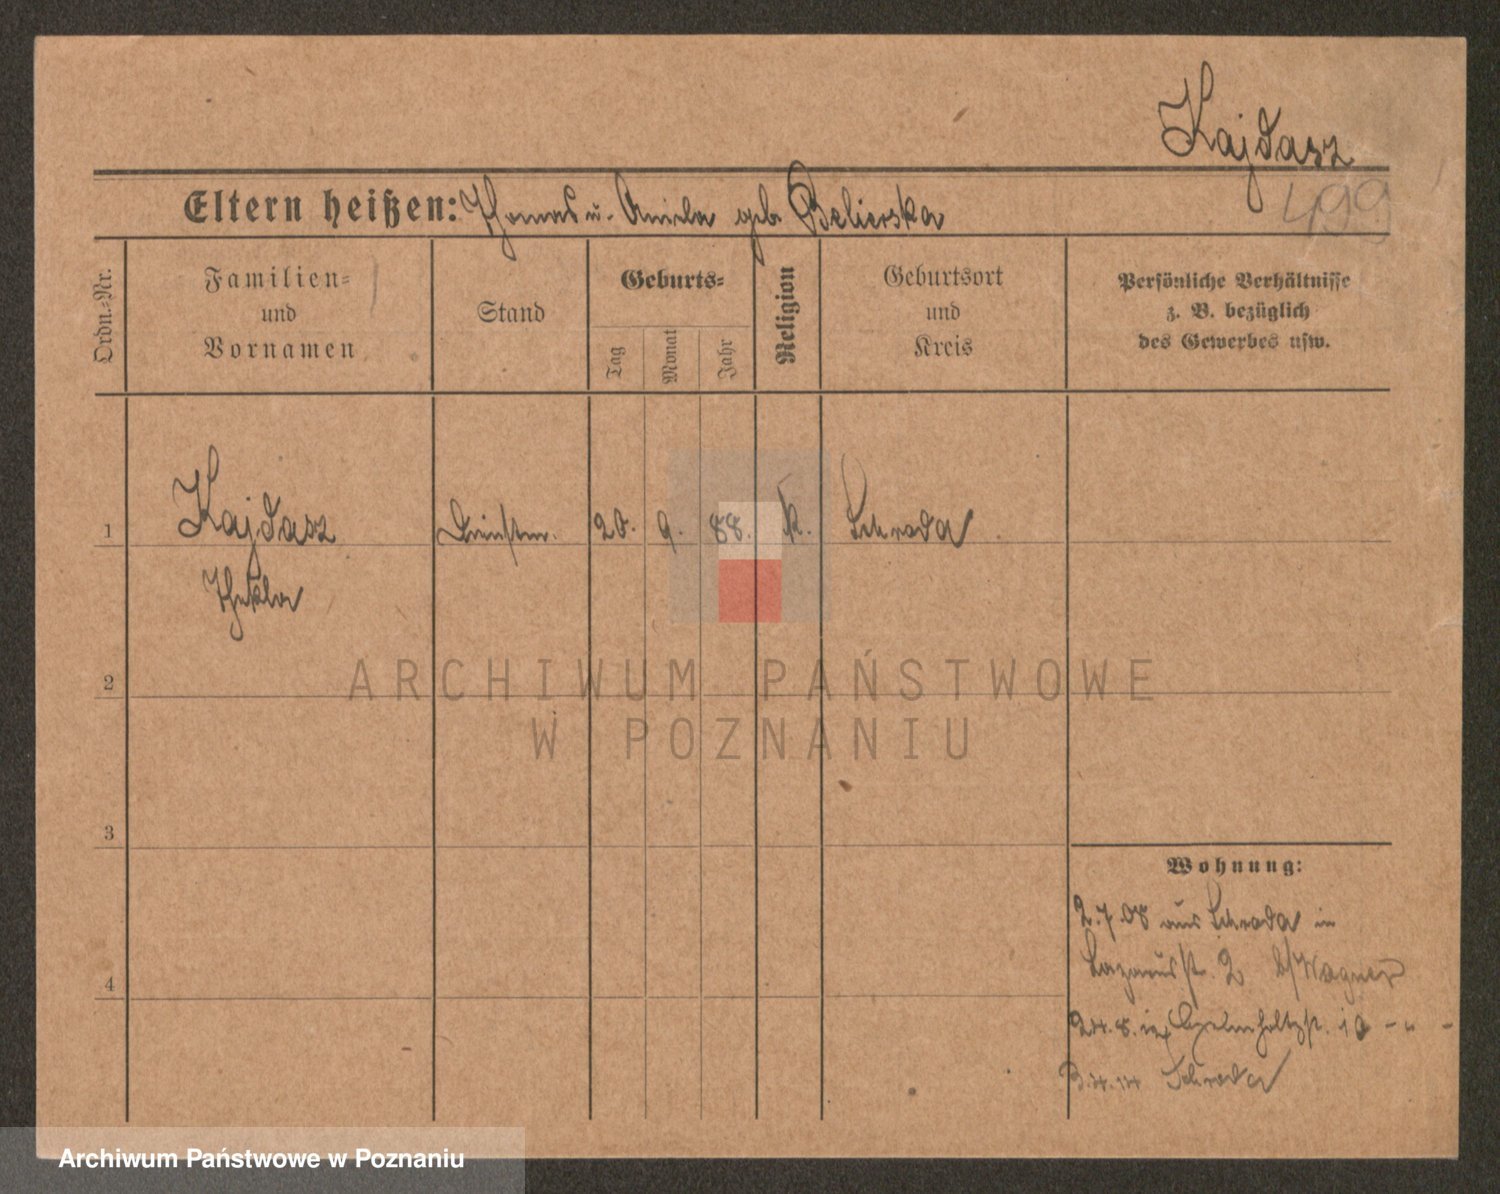 Kajdasz
499
Eltern heißen: Thomas u. Aniela geb. Belierska
Ordn.-Nr.
Familien-
und
Vornamen
Stand
Geburts-
Tag
Monat
Jahr
Religion
Geburtsort
und
Kreis
Persönliche Verhältnisse
z. B. bezüglich
des Gewerbes usw.
1
Kajdasz
20. 9. 88. k. Schroda
Thekla
2
ARCHIWUM PAŃSTWOWE
W POZNANIU
3
Wohnung:
2.7.08 aus Schroda in
Lazarusst. 2 b/Wagner
4
Schroda
Archiwum Państwowe w Poznaniu